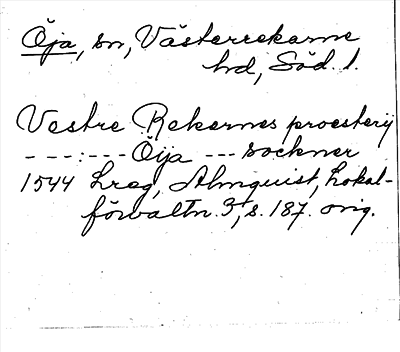 Öja, sn, Västerrekarne
hd, Söd. l.
Vestre Rekernes proesterij
---:---Öija --- sockner
1544 Lreg, Almquist, Lokal-
förvaltn. 3, s. 187. orig.